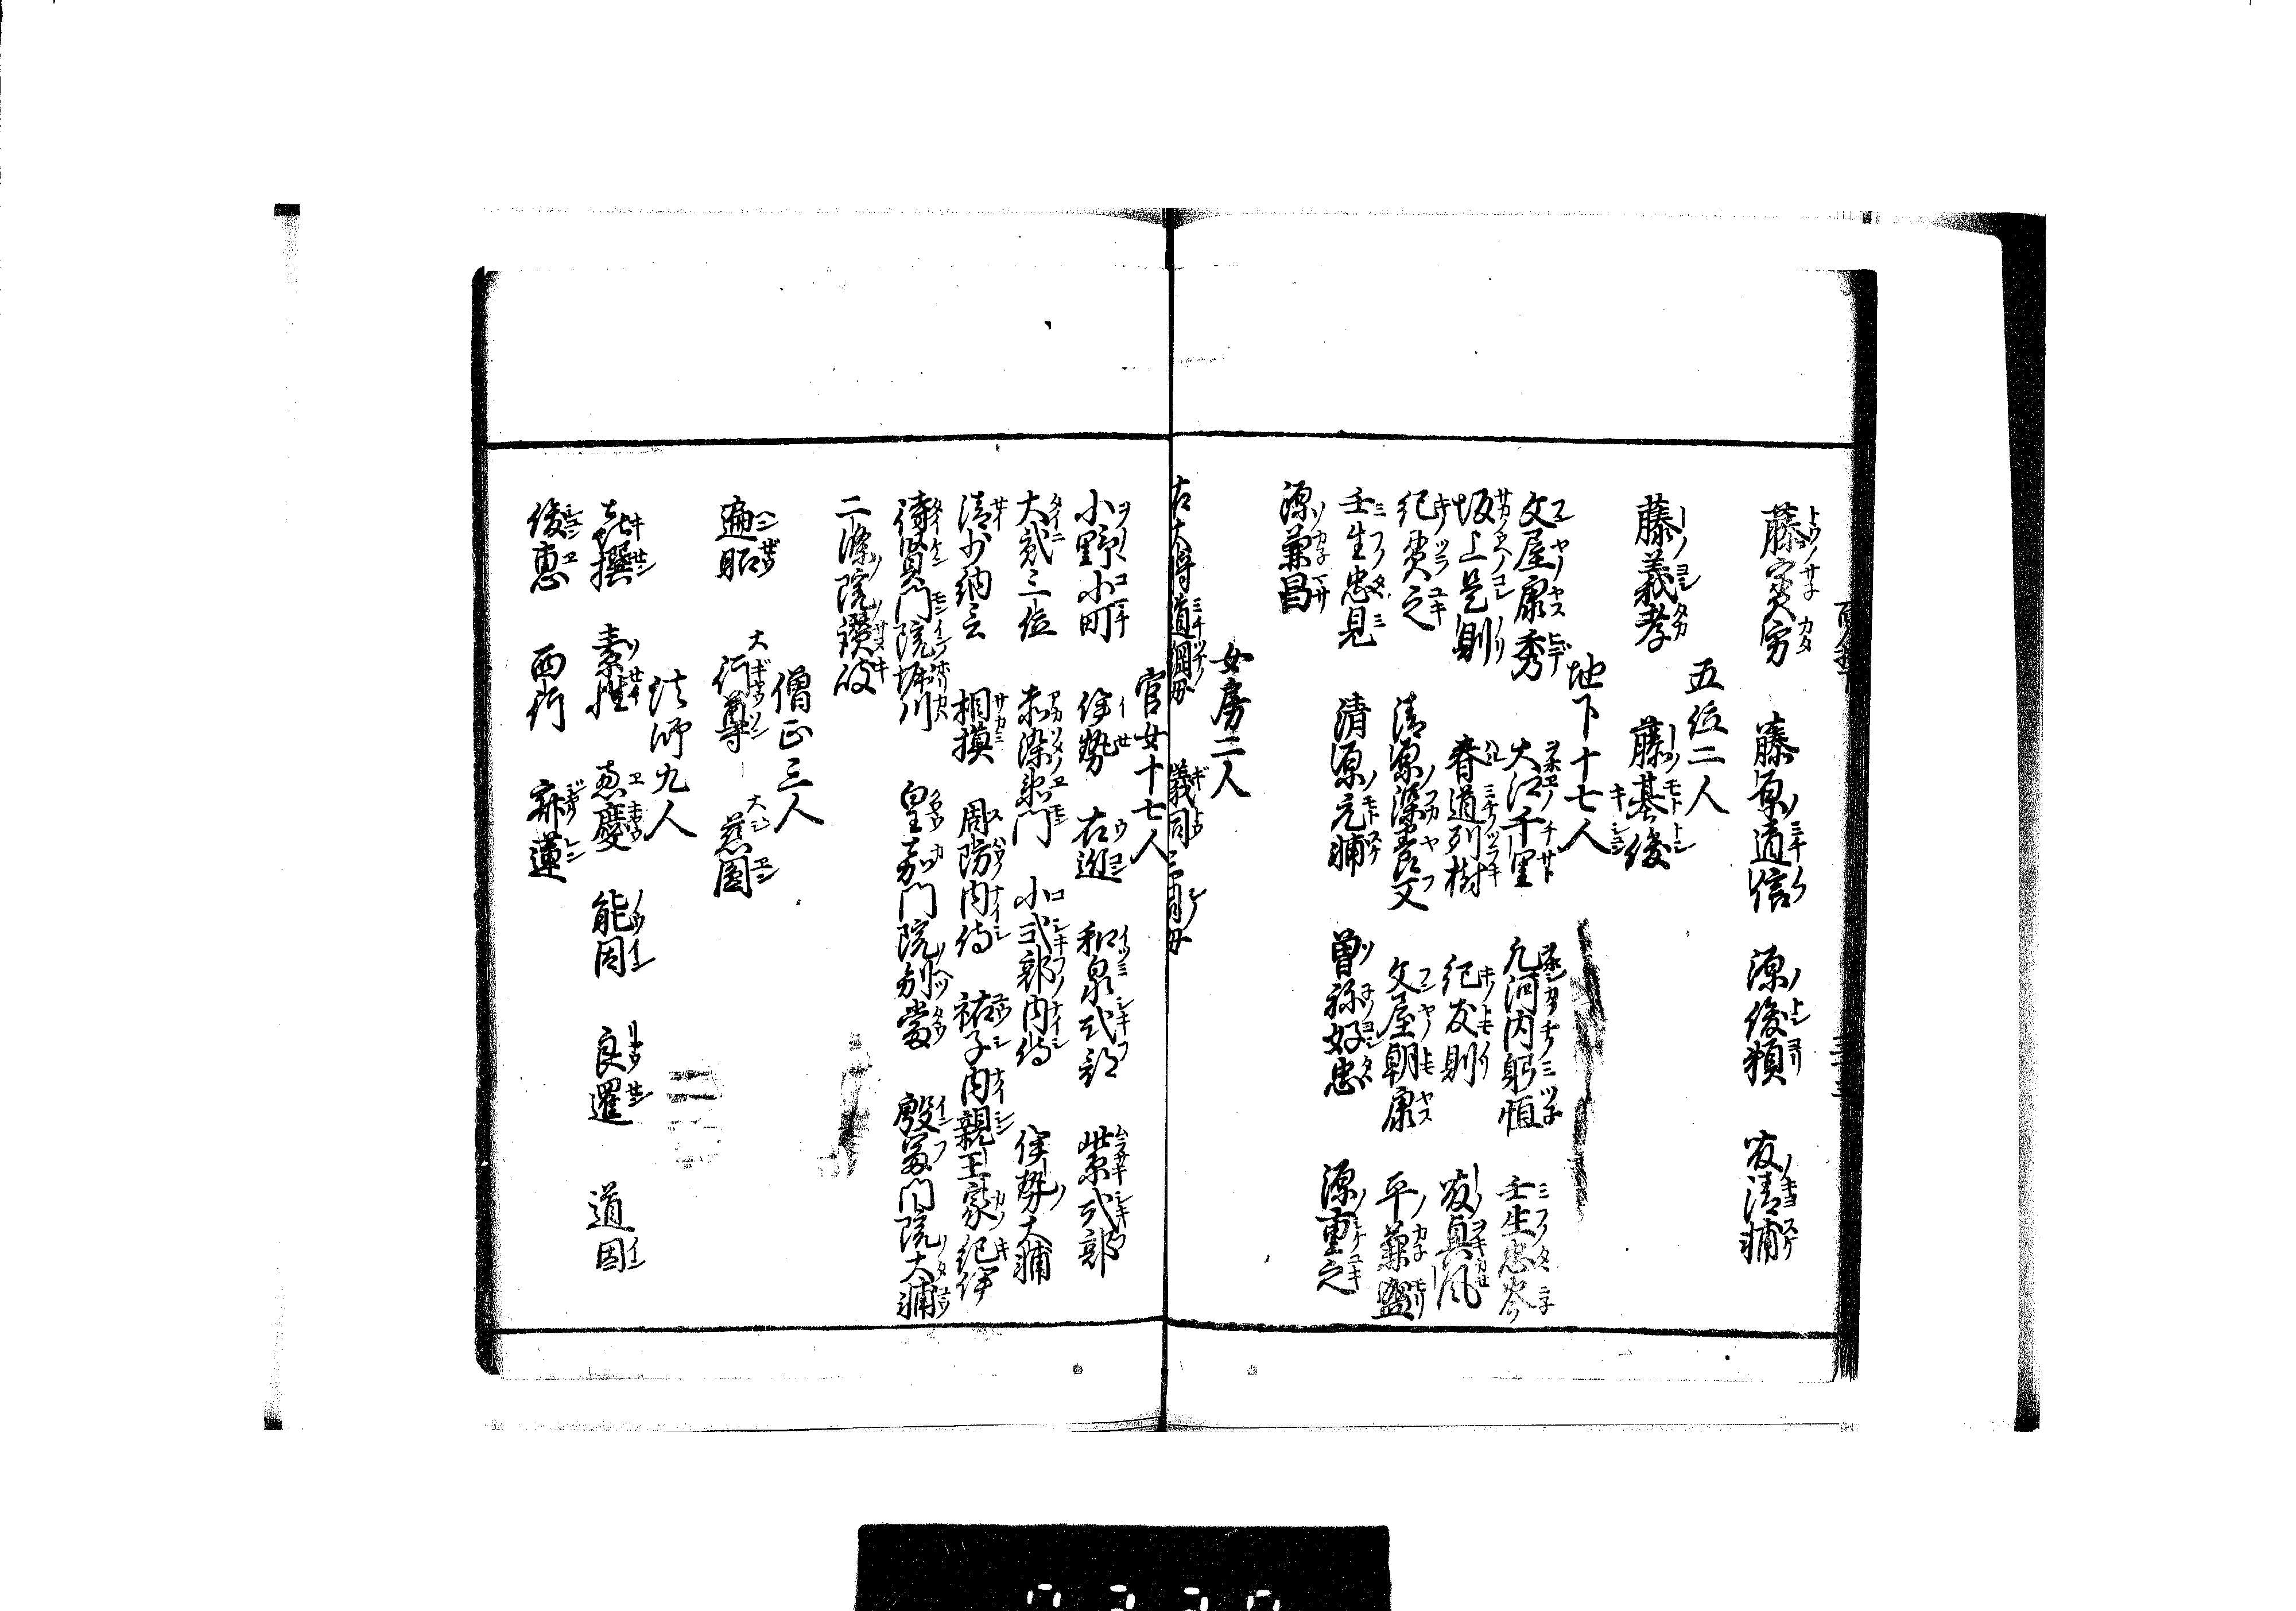 藤實方　藤原道信　源俊頼　友清輔
五位二人
藤義孝　藤基俊
地下十七人
文屋康秀　大江千里　凡河内躬恒　壬生忠岑
坂上是則　春道列樹　紀友則　友興風
紀貫之　清原深養父　文屋朝康　平兼盛
壬生忠見　清原元輔　曽祢好忠　源重之
源兼昌
女房二人
右大将道綱母　儀同三司母
官女十七人
小野小町　伊勢　右近　和泉式部　紫式部
大貳三位　赤染衛門　小式部内侍　伊勢大輔
清少納言　相摸　周防内侍　祐子内親王家紀伊
待賢門院堀川　皇嘉門院別當　殷富門院大輔
二條院讃岐
僧正三人
遍昭　大行尊　大慈圓
法師九人
喜撰　素性　恵慶　能因　良暹　道因
俊恵　西行　寂蓮